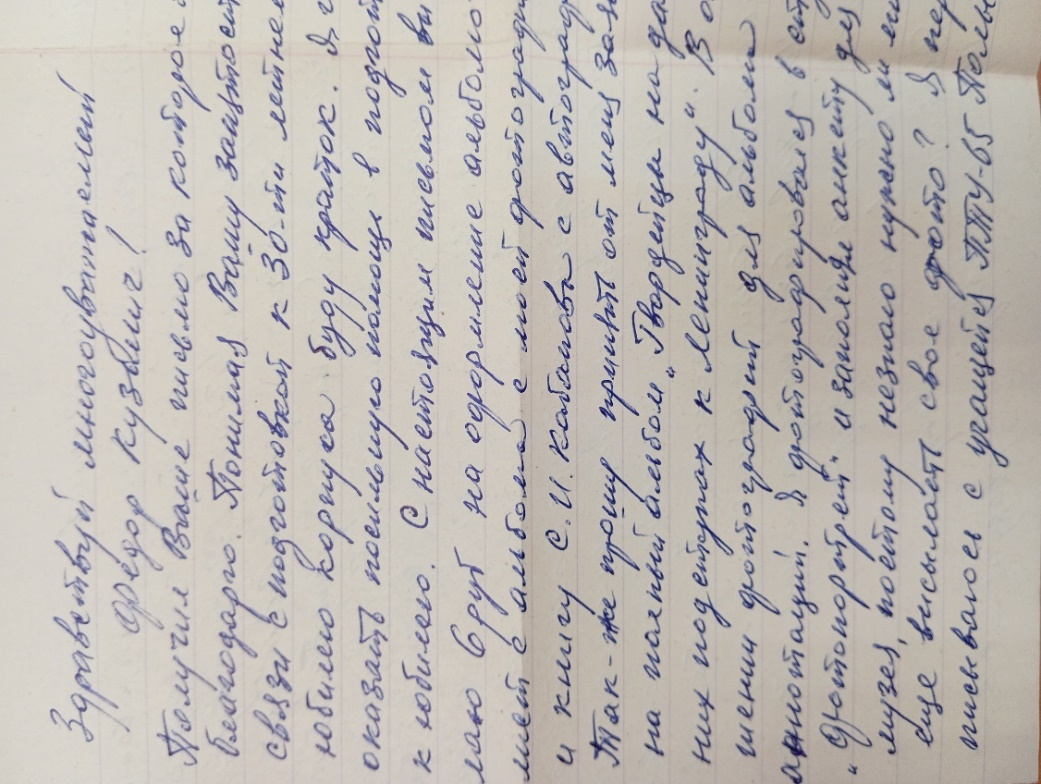 Здравствуй многоуважаемый
Федор Кузьмич!
Получил Ваше письмо за которое
благодарю. Понимая Вашу занятость
связи с подготовкой к 30-ти летне
юбилею корпуса буду краток. Я
оказать посильную помощь в подгот
к юбилею. С настоящим письмом вы
лаю 6 руб на оформление альбомо
мест с альбома с моей фотографи
и книгу С. И. Кабанова с автограф
Так-же прошу принять от меня зак
на полный альбом "Гвардейцы на да
них подступах к Ленинграду". В о
шении фотографий для альбома
аннотаций. Я фотографировался в ст
"Фотопортрет" и заполнял анкету для
музея, поэтому незнаю нужно ли мн
еще высылать свое фото? Я пер
писывалось с учащейся ПТУ-65 Полы